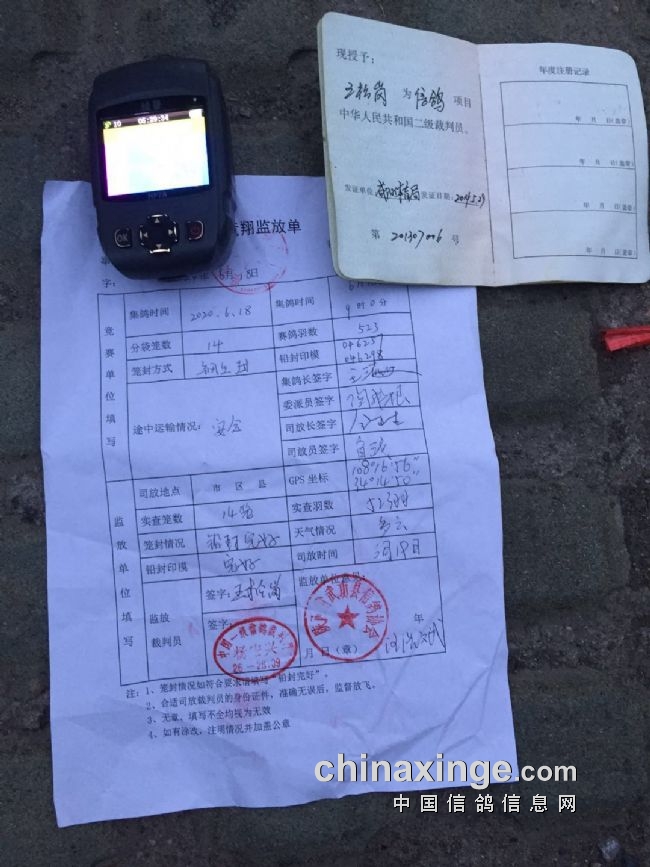 10 06:39:34
OK
现授予：
王松岗 为 信鸽 项目
中华人民共和国二级裁判员。
发证单位 发证日期：
第 201307006 号
年度注册记录
年 月 日(盖章)
年 月 日(盖章)
年 月 日(盖章)
年 月 日(盖章)
翔监放单
字：
6月18日
竞赛单位填写
集鸽时间 2020.6.18 集鸽时间
9时0分
分袋笼数 14 赛鸽羽数 523
笼封方式 铅封印模 046257
046298
途中运输情况： 安全 集鸽长签字
委派员签字
司放长签字
司放员签字
监放单位填写
司放地点 市 区 县 GPS 坐标 108°16'56"
34°14'50"
实查笼数 14笼 实查羽数 523羽
笼封情况 铅封完好 天气情况 多云
铅封印模 完好 司放时间 6月19日
监放裁判员 签字：王松岗 监放单位意见：
签字：
年
月 日（章）
武功县信鸽协会
中国一级信鸽裁判员
注：1、笼封情况如符合要求请填写“铅封完好”。
2、合适司放裁判员的身份证件，准确无误后，监督放飞。
3、无章，填写不全均视为无效
4、如有涂改，注明情况并加盖公章
chinaxinge.com
中国信鸽信息网